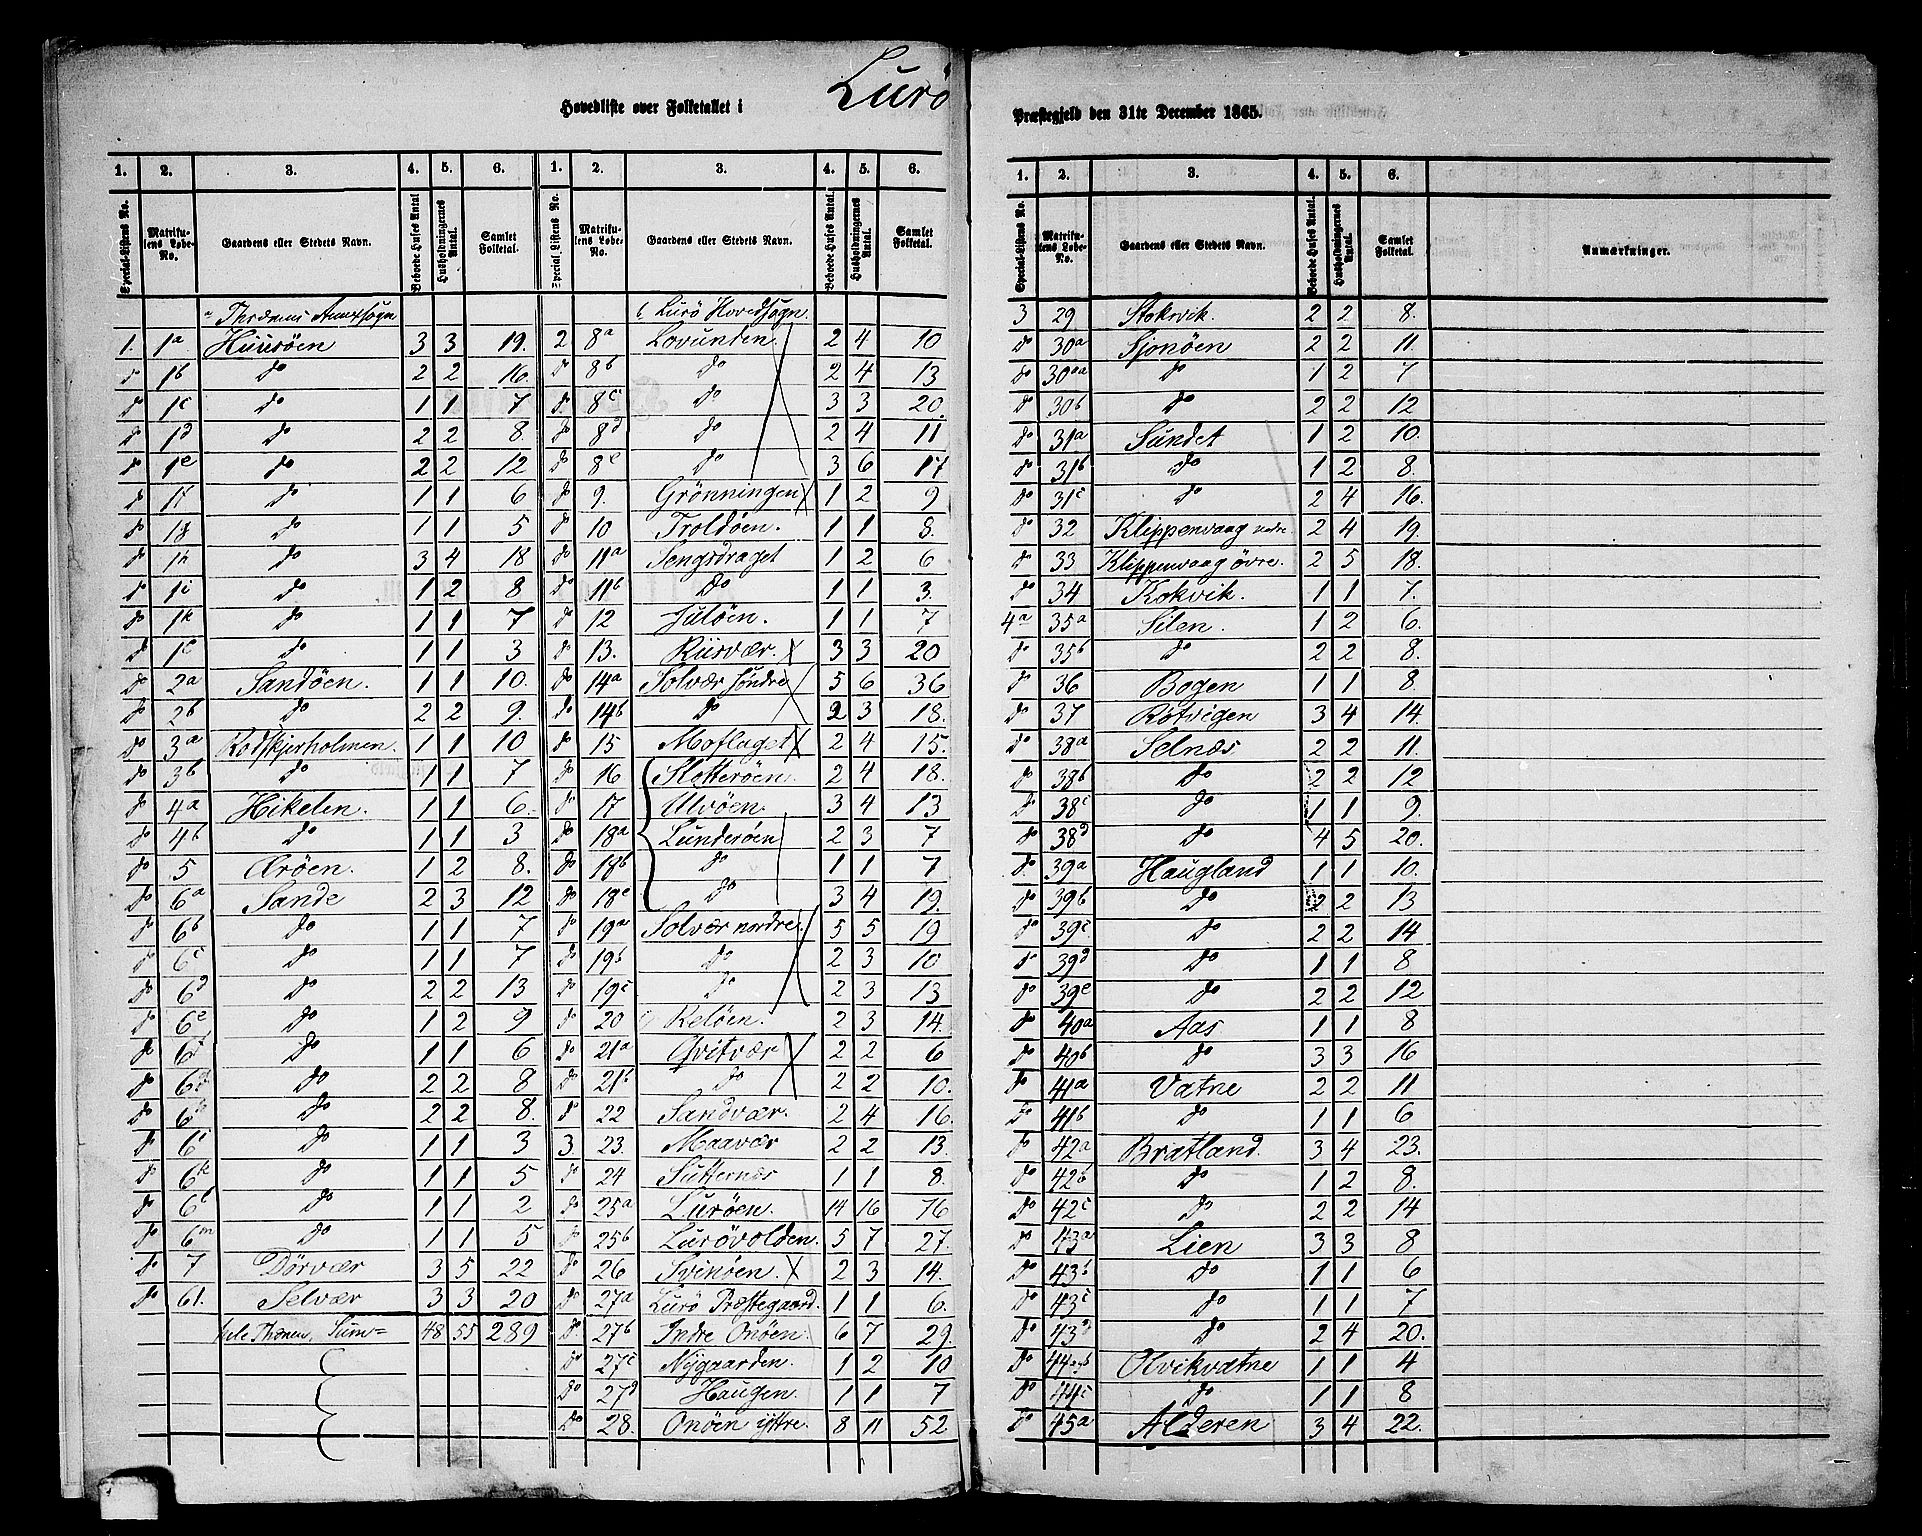 Hovedliste over Folketallet i Lurö
Præstegjeld den 31te December 1865.
1. 2. 3. 4. 5. 6. 1. 2. 3. 4. 5. 6.
Special-Listens No. Matrikulens Løbe-No. Gaardens eller Stedets Navn. Beboede Huses Antal Husholdningernes Antal. Samlet Folketal. Special Listens No. Matrikulens Løbe-No. Gaardens eller Stedets Navn. Beboede Huses Antal. Husholdningernes Antal. Samlet Folketal.
Thrænens Annexsogn Lurö Hovedsogn
1. 1a Huusöen 3 3 19. 2 8a Lovunden. 2 4 10
do 1b do 2 2 16. do 8b do 2 4 13
do 1c do 1 1 7 do 8c do 3 3 20.
do 1d do 2 2 8. do 8d do 2 4 11
do 1e do 2 2 12 do 8e do 3 6 17
do 1f do 1 1 6 do 9. Grönningen 1 2 9
do 1g do 1 1 5 do 10 Troldöen. 1 1 8.
do 1h do 3 4 18 do 11a Sengsdraget 1 2 6
do 1i do 1 2 8 do 11b do 1 1 3.
do 1k do 1 1 7 do 12 Julöen. 1 1 7
do 1l do 1 1 3 do 13. Riisvær. 3 3 20
do 2a Sandöen. 1 1 10. do 14a Solvær söndre 5 6 36
do 2b do 2 2 9. do 14b do 2 3 18.
do 3a Rodskjerholmen. 1 1 10 do 15 Moflaget 2 4 15.
do 3b do 1 1 7 do 16 Sletteröen. 2 4 18.
do 4a Hikelen. 1 1 6. do 17 Alvöen. 3 4 13
do 4b do 1 1 3 do 18a Lunderöen 2 3 7
do 5 Æröen. 1 2 8. do 18b do 1 1 7
do 6a Sande 2 3 12 do 18c do 3 4 19.
do 6b do 1 1 7 do 19a Solvær nordre. 5 5 19
do 6c do 1 1 7 do 19b do 2 3 10
do 6d do 2 2 13 do 19c do 2 3 13
do 6e do 1 2 9 do 20 Kelöen. 2 3 14.
do 6f do 1 1 6 do 21a Qvitvær 2 2 6
do 6g do 2 2 8 do 21b do 2 2 10.
do 6h do 2 2 8. do 22 Sandvær. 2 4 16
do 6i do 1 1 3 3. 23. Maavær 2 2 13.
do 6k do 1 1 5 do 24 Sutternæs 1 1 8.
do 6l do 1 1 2 do 25a Luröen. 14 16 76
do 6m do 1 1 5 do 25b LuröVolden. 5 7 27.
do 7 Dörvær 3 5 22 do 26 Svinöen. 2 3 14.
do 61. Selvær 3 3 20 do 27a Lurö Præstegaard. 1 1 6.
hele Thrænen, Sum= 48 55 289 do 27b Indre Onöen. 6 7 29.
do 27c Nygaarden. 1 2 10
do 27d Haugen. 1 1 7
do 28. Onöen ijttre. 8 11 52
1. 2. 3. 4. 5. 6.
Special-Listens No. Matrikulens Løbe-No. Gaardens eller Stedets Navn. Beboede Huses Antal. Husholdningernes Antal. Samlet Folketal. Anmærkninger.
3 29 Stokvik. 2 2 8.
do 30a Sjonöen 2 2 11
do 30aa do 1 2 7
do 30b do 2 2 12
do 31a Sundet 1 2 10.
do 31b do 1 2 8.
do 31c do 2 4 16.
do 32 Klippenvaag nedre. 2 4 19.
do 33 Klippenvaag övre. 2 5 18.
do 34 Kokvik. 1 1 7.
4a 35a Silen. 1 2 6.
do 35b do 2 2 8.
do 36 Bogen 1 1 8.
do 37 Rötvigen 3 4 14.
do 38a Selnæs 2 2 11.
do 38b do 2 2 12
do 38c do 1 1 9.
do 38d do 4 5 20.
do 39a Haugland 1 1 10.
do 39b do 2 2 13
do 39c do 2 2 14
do 39d do 1 1 8
do 39e do 2 2 12
do 40a Aas 1 1 8
do 40b do 3 3 16
do 41a Vatne 2 2 11
do 41b do 1 1 6
do 42a Bratland. 3 4 23.
do 42b do 1 2 8.
do 42c do 2 2 14
do 43a Lien 3 3 8
do 43b do 1 1 6
do 43c do 1 1 7
do 43d do 2 4 20.
do 44a,b Olvikvatne 1 1 4
do 44c do 1 1 8
do 45a Alderen 3 4 22.